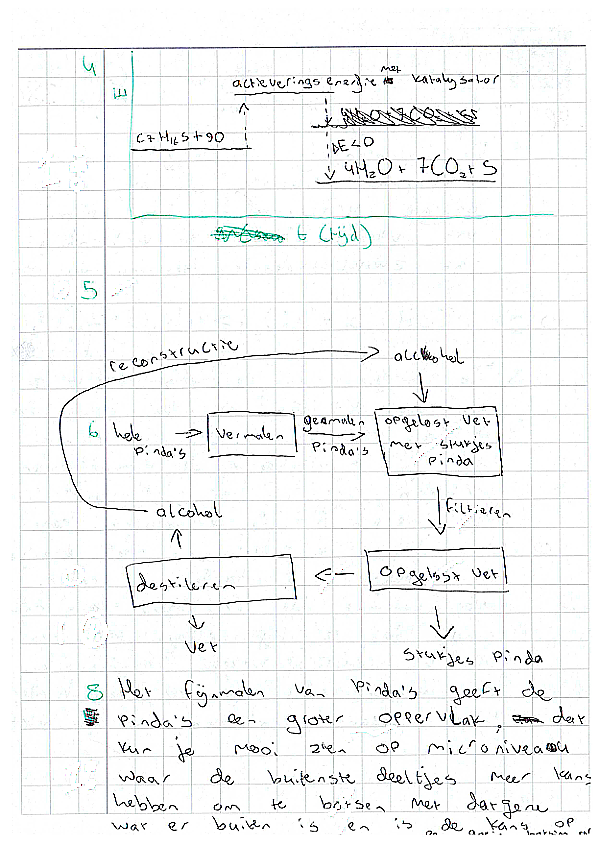 4
activerings energie met katalysator
E
C7H16S+9O
ΔE<0
4H2O+ 7CO2+S
t (tijd)
5
reconstructie
alcohol
6 hele pinda's
vermalen
gemalen pinda's
opgelost vet
met stukjes
pinda
filtreren
alcohol
destileren
opgelost vet
vet
stukjes pinda
8 Het fijnmalen van pinda's geeft de
pinda's een groter oppervlak, dat
kun je mooi zien op microniveau
waar de buitenste deeltjes meer kans
hebben om te botsen met datgene
wat er buiten is en is de kans op